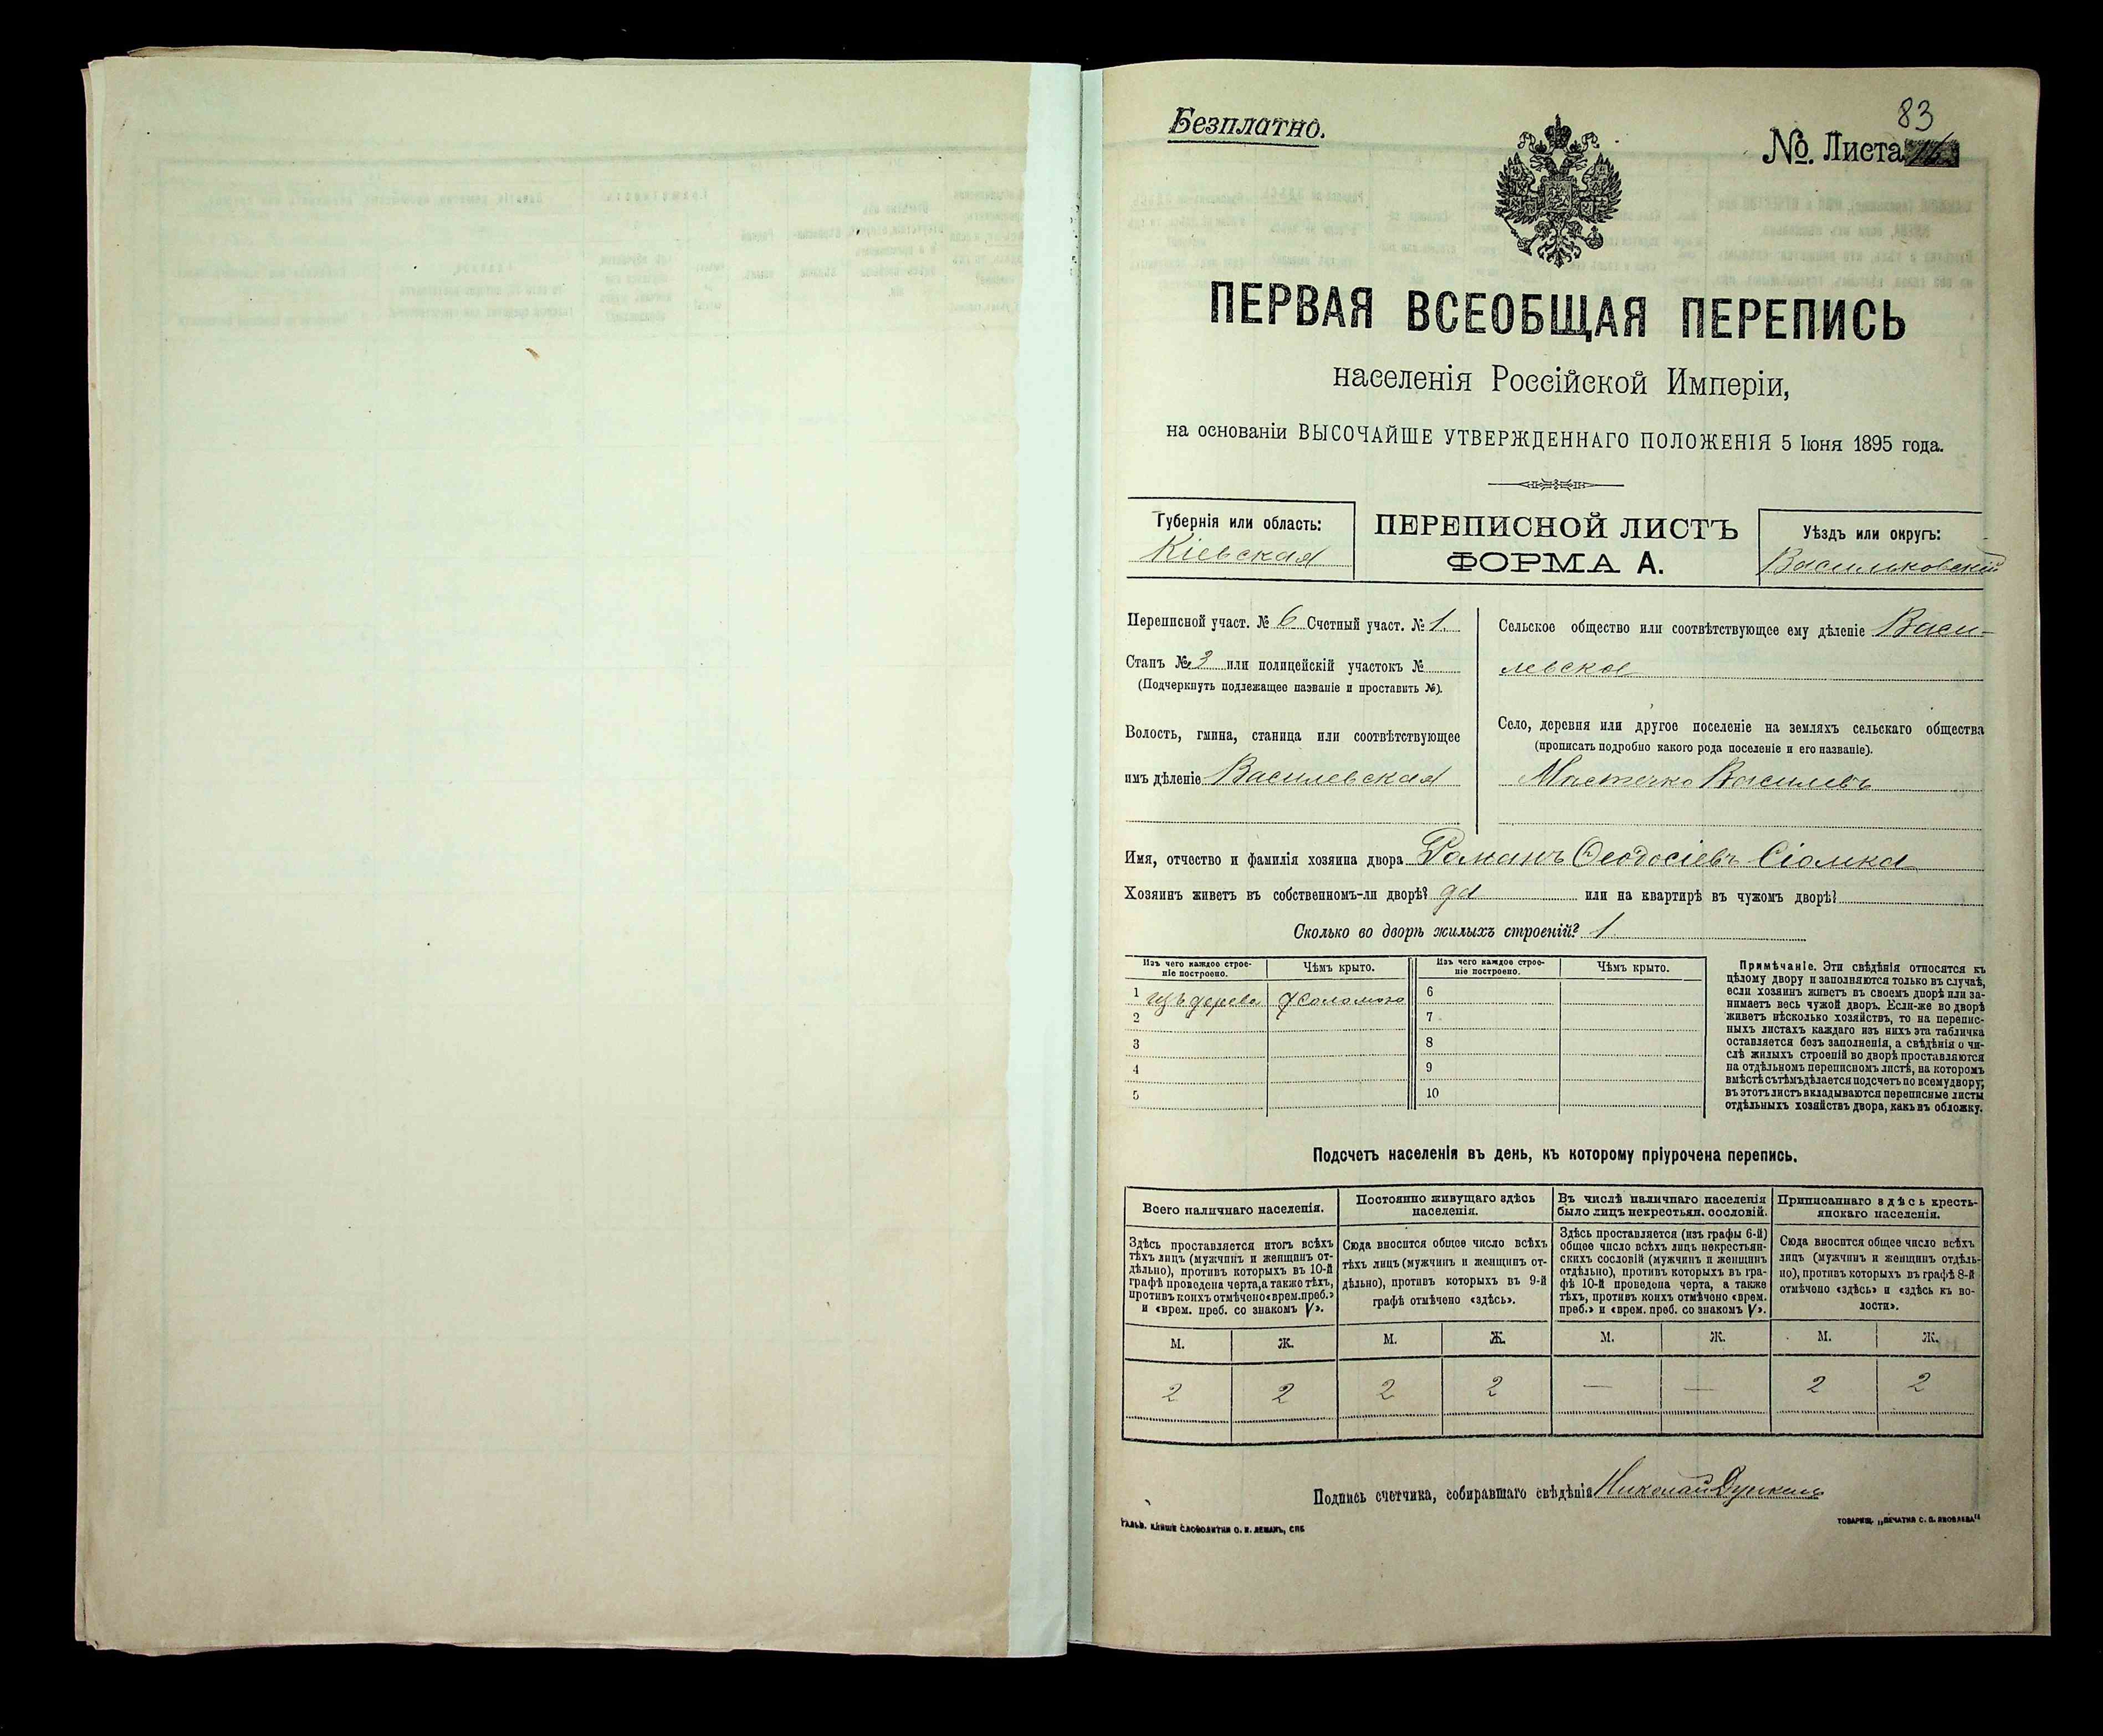 Безплатно.
83
№. Листа
ПЕРВАЯ ВСЕОБЩАЯ ПЕРЕПИСЬ
населенія Россійской Имперіи,
на основаніи ВЫСОЧАЙШЕ УТВЕРЖДЕННАГО ПОЛОЖЕНІЯ 5 Іюня 1895 года.
Губернія или область:
Кіевская
ПЕРЕПИСНОЙ ЛИСТЪ
ФОРМА А.
Уѣздъ или округъ:
Васильковскій
Переписной участ. № 6 Счетный участ. № 1.
Станъ № 3 или полицейскій участокъ №
(Подчеркнуть подлежащее названіе и проставить №).
Волость, гмина, станица или соотвѣтствующее
имъ дѣленіе Василевская
Сельское общество или соотвѣтствующее ему дѣленіе Васи-
левское
Село, деревня или другое поселеніе на земляхъ сельскаго общества
(прописать подробно какого рода поселеніе и его названіе).
Мѣстечко Василевъ
Имя, отчество и фамилія хозяина двора Романъ Ѳеодосіевъ Сіомка
Хозяинъ живетъ въ собственномъ-ли дворѣ? да или на квартирѣ въ чужомъ дворѣ?
Сколько во дворѣ жилыхъ строеній? 1
Изъ чего каждое строе-
ніе построено.
Чѣмъ крыто.
Изъ чего каждое строе-
ніе построено.
Чѣмъ крыто.
1 изъ дерева соломою 6
2 7
3 8
4 9
5 10
Примѣчаніе. Эти свѣдѣнія относятся къ
цѣлому двору и заполняются только въ случаѣ,
если хозяинъ живетъ въ своемъ дворѣ или за-
нимаетъ весь чужой дворъ. Если-же во дворѣ
живетъ нѣсколько хозяйствъ, то на перепис-
ныхъ листахъ каждаго изъ нихъ эта табличка
оставляется безъ заполненія, а свѣдѣнія о чи-
слѣ жилыхъ строеній во дворѣ проставляются
на отдѣльномъ переписномъ листѣ, на которомъ
вмѣстѣ съ тѣмъ дѣлается подсчетъ по всему двору;
въ этотъ листъ вкладываются переписные листы
отдѣльныхъ хозяйствъ двора, какъ въ обложку.
Подсчетъ населенія въ день, къ которому пріурочена перепись.
Всего наличнаго населенія.
Здѣсь проставляется итогъ всѣхъ
тѣхъ лицъ (мужчинъ и женщинъ от-
дѣльно), противъ которыхъ въ 10-й
графѣ проведена черта, а также тѣхъ,
противъ коихъ отмѣчено «врем. преб.»
и «врем. преб. со знакомъ V».
Постоянно живущаго здѣсь
населенія.
Сюда вносится общее число всѣхъ
тѣхъ лицъ (мужчинъ и женщинъ от-
дѣльно), противъ которыхъ въ 9-й
графѣ отмѣчено «здѣсь».
Въ числѣ наличнаго населенія
было лицъ некрестьян. сословій.
Здѣсь проставляется (изъ графы 6-й)
общее число всѣхъ лицъ некрестьян-
скихъ сословій (мужчинъ и женщинъ
отдѣльно), противъ которыхъ въ гра-
фѣ 10-й проведена черта, а также
тѣхъ, противъ коихъ отмѣчено «врем.
преб.» и «врем. преб. со знакомъ V».
Приписаннаго здѣсь кресть-
янскаго населенія.
Сюда вносится общее число всѣхъ
лицъ (мужчинъ и женщинъ отдѣль-
но), противъ которыхъ въ графѣ 8-й
отмѣчено «здѣсь» и «здѣсь къ во-
лости».
М. Ж. М. Ж. М. Ж. М. Ж.
2 2 2 2 — — 2 2
Подпись счетчика, собиравшаго свѣдѣнія Николай
ГАЛЬВ. КЛИШЕ СЛОВОЛИТНИ О. И. ЛЕМАНЪ, СПБ
ТОВАРИЩ. „ПЕЧАТНЯ С. П. ЯКОВЛЕВА"